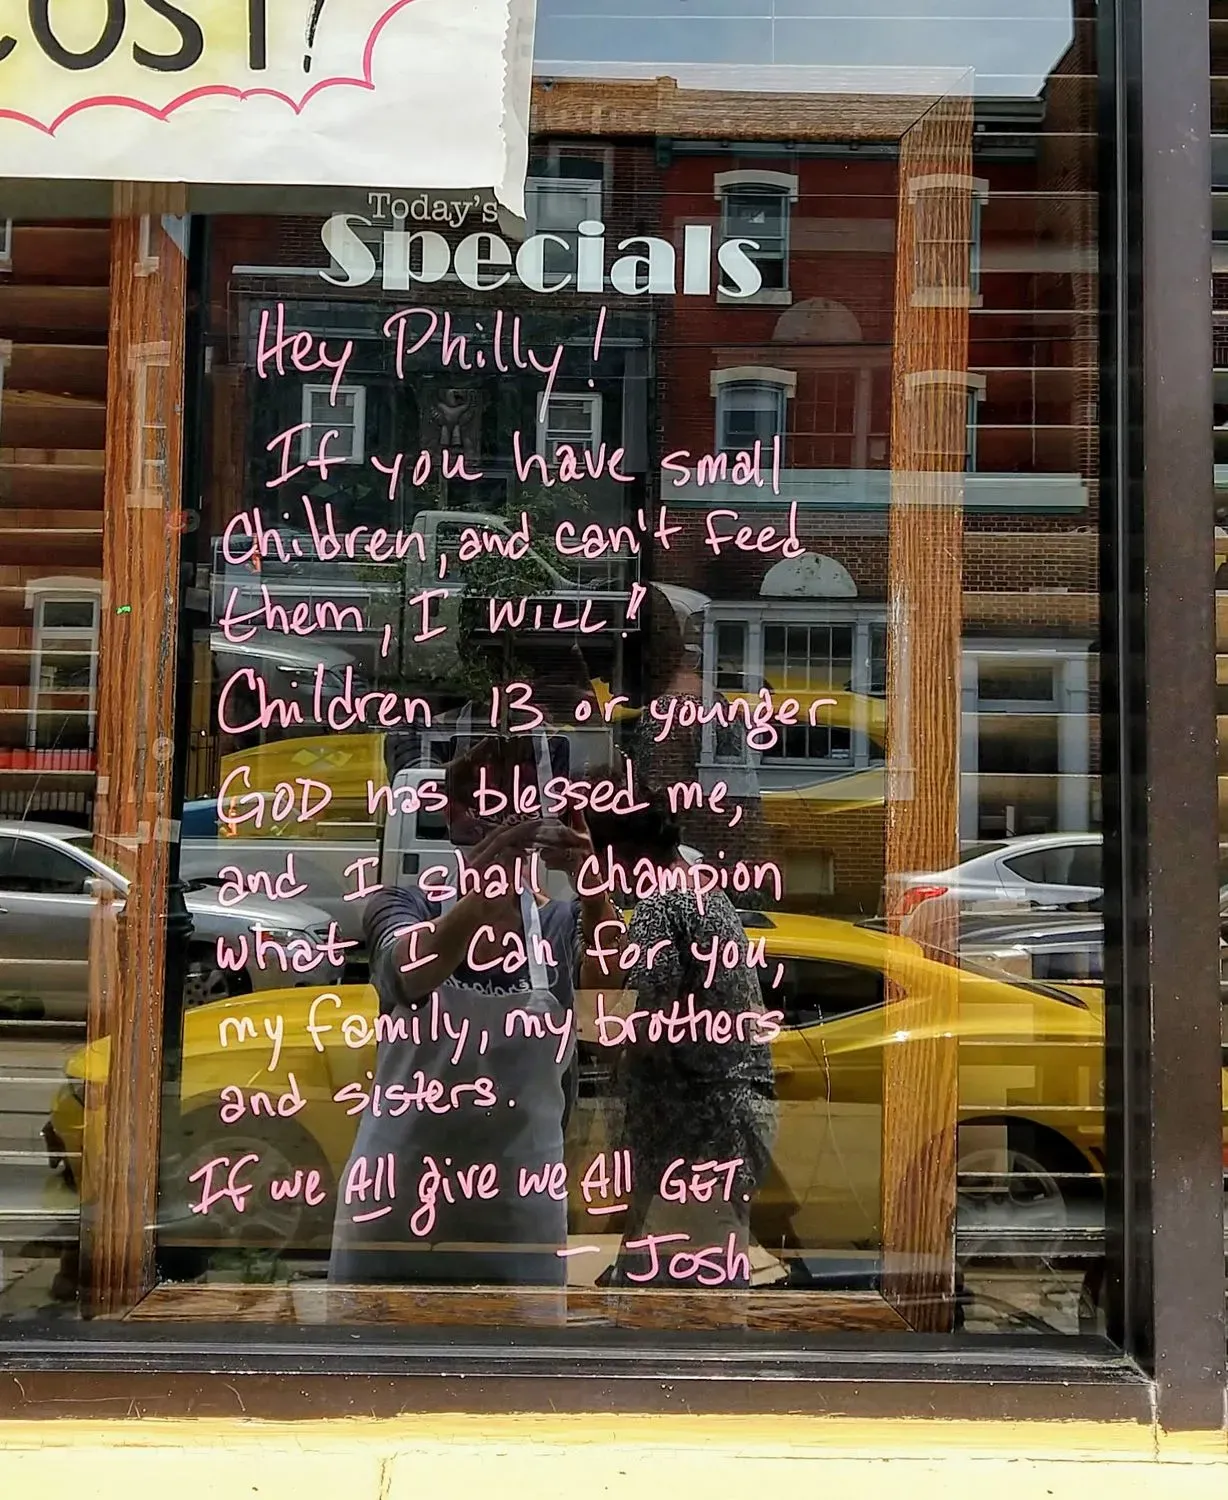 COST!
Today's
Specials
Hey Philly!
If you have small
Children, and can't feed
them, I WILL!
Children 13 or younger
GOD has blessed me,
and I shall champion
what I can for you,
my family, my brothers
and sisters.
If we All give we All GET.
- Josh